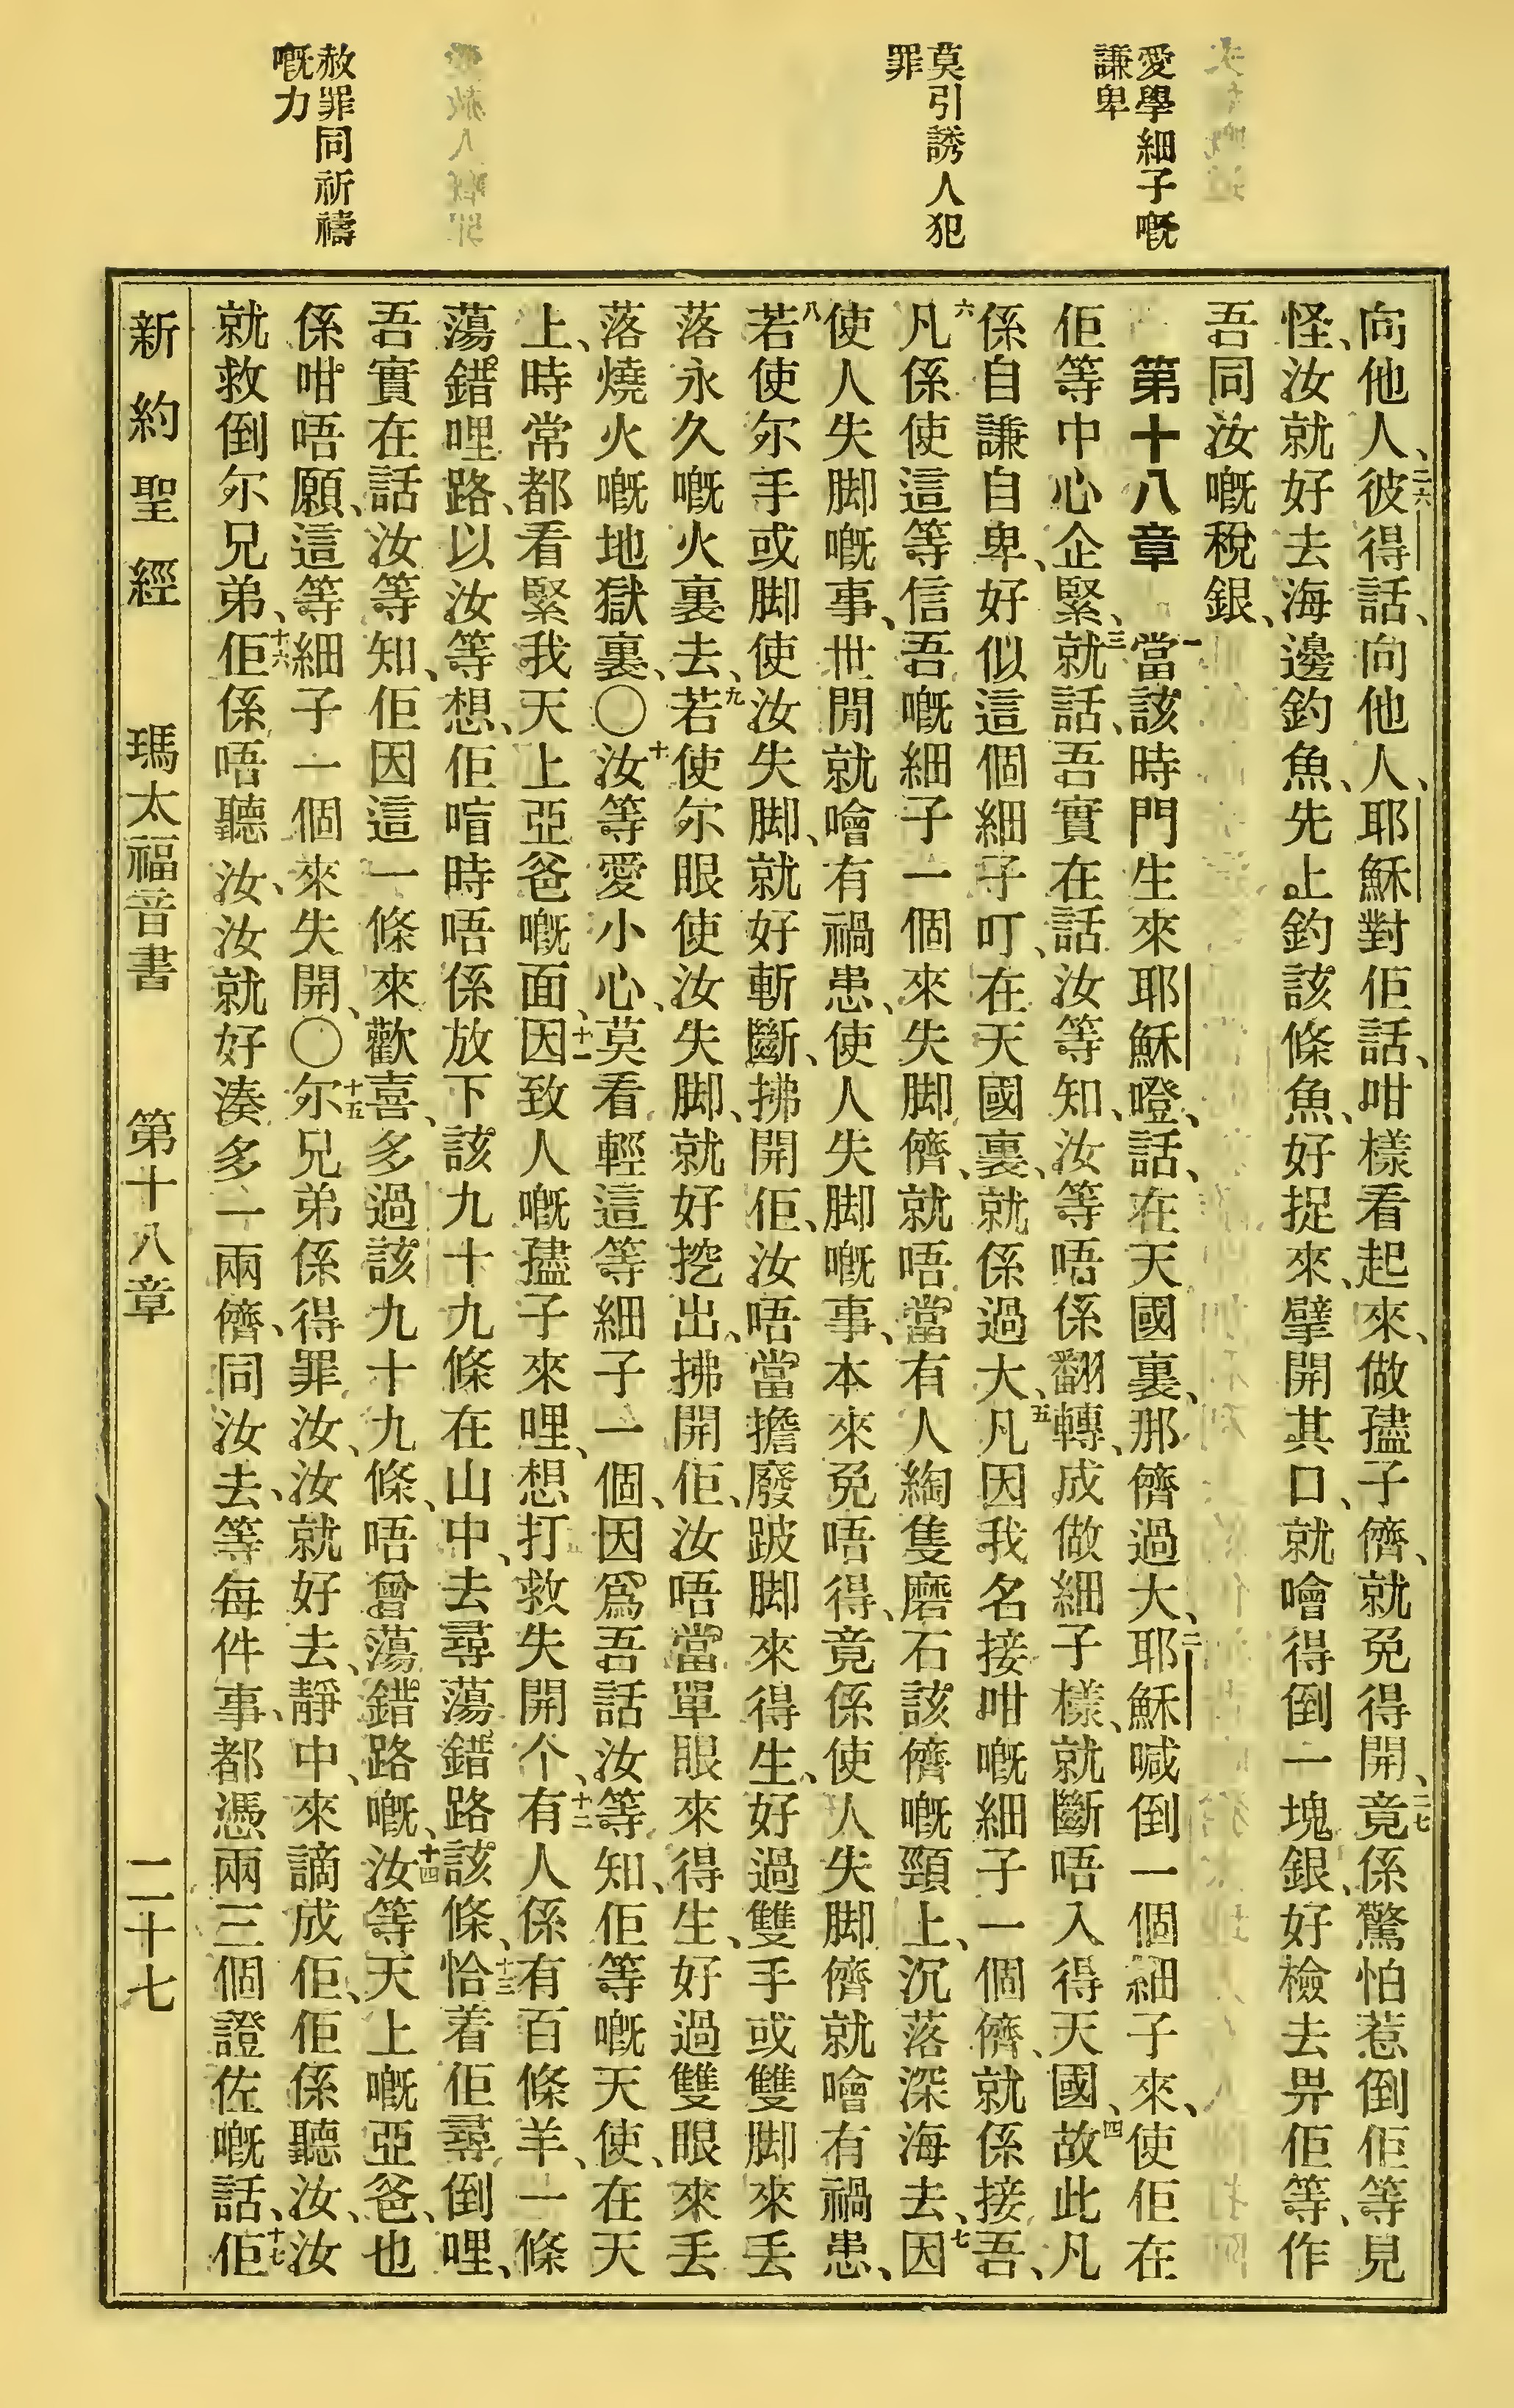 愛學細子嘅
謙卑
莫引誘人犯
罪
赦罪同祈禱
嘅力
向他人、二六彼得話、向他人、耶穌對佢話、咁樣看起來、做孻子儕、就免得開、二七竟係驚怕惹倒佢等見
怪、汝就好去海邊釣魚、先上釣該條魚、好捉來、擘開其口、就噲得倒一塊銀、好檢去畀佢等、作
吾同汝嘅稅銀、
第十八章　一當該時門生來耶穌嶝、話、在天國裏、那儕過大、二耶穌喊倒一個細子來、使佢在
佢等中心企緊、三就話、吾實在話汝等知、汝等唔係翻轉、成做細子樣、就斷唔入得天國、四故此凡
係自謙自卑、好似這個細子叮、在天國裏、就係過大、五凡因我名接咁嘅細子一個儕、就係接吾、
六凡係使這等信吾嘅細子一個來失脚儕、就唔當有人綯隻磨石該儕嘅頸上、沉落深海去、七因
使人失脚嘅事、世閒就噲有禍患、使人失脚嘅事、本來免唔得、竟係使人失脚儕就噲有禍患、
八若使尔手或脚使汝失脚、就好斬斷、拂開佢、汝唔當擔廢跛脚來得生、好過雙手或雙脚來丟
落永久嘅火裏去、九若使尔眼使汝失脚、就好挖出、拂開佢、汝唔當單眼來得生、好過雙眼來丟
落燒火嘅地獄裏、〇十汝等愛小心、莫看輕這等細子一個、因爲吾話汝等知、佢等嘅天使、在天
上、時常都看緊我天上亞爸嘅面、十一因致人嘅孻子來哩、想打救失開个、十二有人係有百條羊、一條
蕩錯哩路、以汝等想、佢喑時唔係放下該九十九條在山中、去尋蕩錯路該條、十三恰着佢尋倒哩、
吾實在話汝等知、佢因這一條來歡喜、多過該九十九條、唔曾蕩錯路嘅、十四汝等天上嘅亞爸、也
係咁唔願、這等細子一個來失開、〇十五尔兄弟係得罪汝、汝就好去、靜中、來謫成佢、佢係聽汝、汝
就救倒尔兄弟、十六佢係唔聽汝、汝就好湊多一兩儕、同汝去、等每件事、都憑兩三個證佐嘅話、十七佢
新約聖經　瑪太福音書　第十八章　二十七